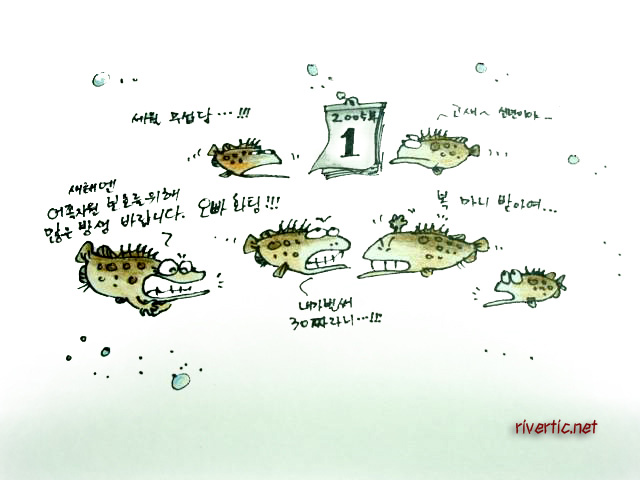 세월 무섭담 ...!!!
2005年
1
고새~ 신년이야 ..
새해엔
어족자원 보호를 위해
많은 방생 바랍니다.
오빠 화팅!!!
복 마니 받아여...
내가 벌써
30 짜라니...!!!
rivertic.net